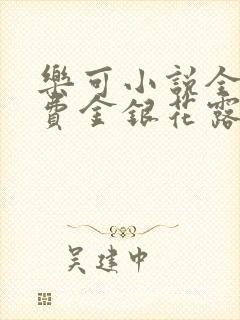 樂可小說全
費金銀花露
吴建中